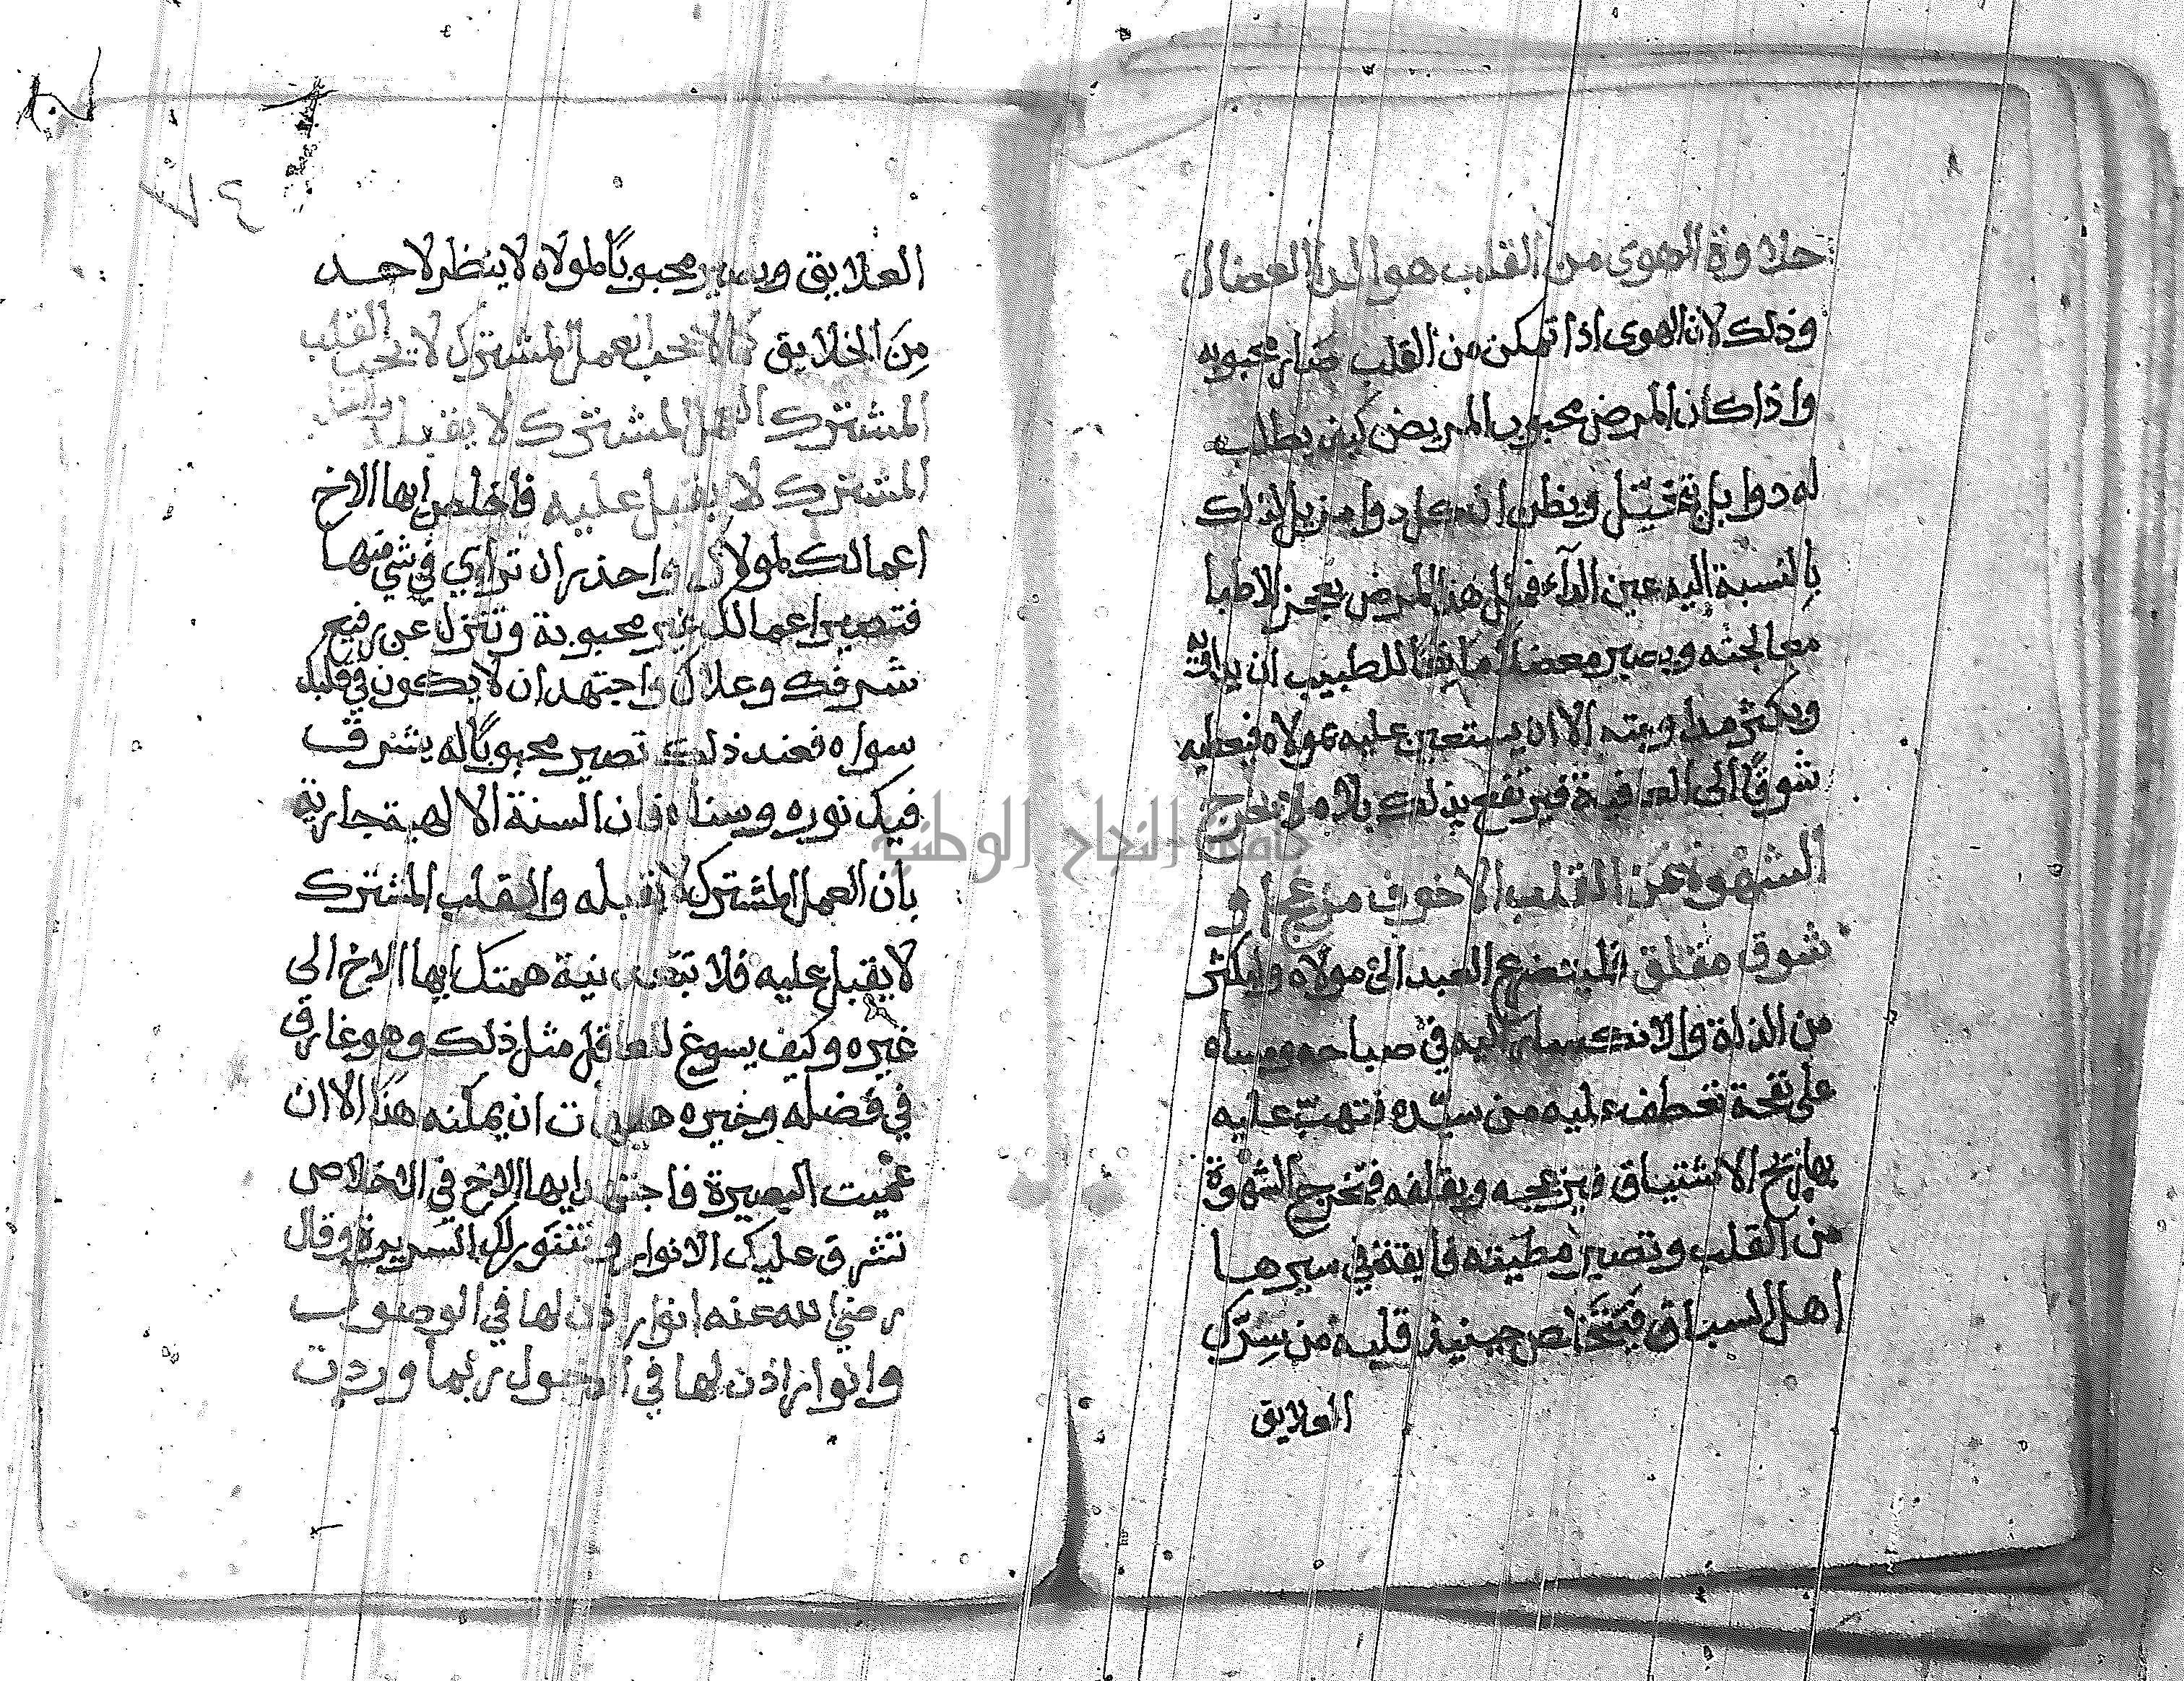 حلاوة الهوى من القلب هو الدا العضال
وذلك لان الهوى اذا تمكن من القلب صار محبوبه
واذا كان المرض محبوب المريض كيف يطلب
له دوا بل يتخيل ويظن ان كل دوا مزيل لذلك
بالنسبة اليه عين الدآء فمثل هذا المرض يعجز الاطبا
معالجته ويصير معضلا ما بقا للطبيب ان
ويكثر مداويته الا ان يستعين عليه بمولاه فيعطيه
شوقًا الى العافية فيرتفع بذلك بلاه لا يخرج
الشهوة من القلب الا خوف مزعج او
شوق مقلق فليتضرع العبد الى مولاه وليكثر
من الذلة والانكسار اليه في صباحه ومساه
على نفحة تخطف عليه من سيّده فتهبّ عليه
بها ريح الاشتياق فيزعجه ويقلقه فتخرج الشهوة
من القلب وتصير مطيته فايقة في سيرها
اهل السباق فيتخلص حينيذ قلبه من شِرْك
العلايق
العلايق ويصير محبوبًا لمولاه لا ينظر لاحد
مِنَ الخلايق كما لا يحب العمل المشترك لا يحب القلب
المشترك العمل المشترك لا يقبله والقلب
المشترك لا يقبل عليه فاخلص ايها الاخ
اعمالك لمولاك واحذر ان تراوي في شي منها
فتصير اعمالك غير محبوبة وتنزل عن رفيع
شرفك وعلاك واجتهد ان لا يكون في قلبك
سواه فعند ذلك تصير محبوبًا له يشرق
فيك نوره وسناه فان السنة الالهية جارية
بان العمل المشترك لا يقبله والقلب المشترك
لا يقبل عليه فلا نية همتك ايها الاخ الى
غيره وكيف يسوغ للعاقل مثل ذلك وهو غارق
في فضله وخيره هيهات ان يمكنه هذا الا ان
عُميت البصيرة فاجتهد ايها الاخ في الاخلاص
تشرق عليك الانوار وتتنور لك السريرة وقال
رضي الله عنه انوار اذن لها في الوصول
وانوار اذن لها في الدخول ربما وردت
جامعة النجاح الوطنية